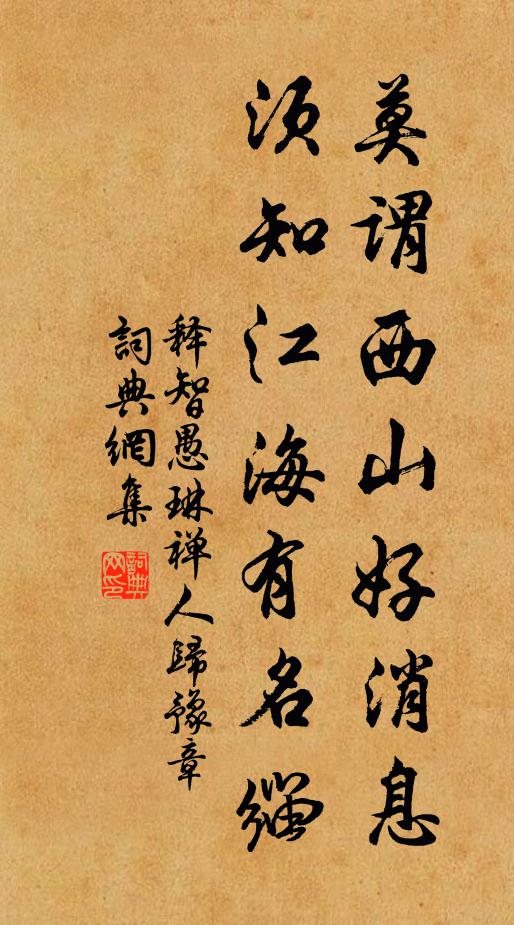 莫谓西山好消息
须知江海有名缁
释智愚琳禅人歸豫章
詞典網集
詞典網印